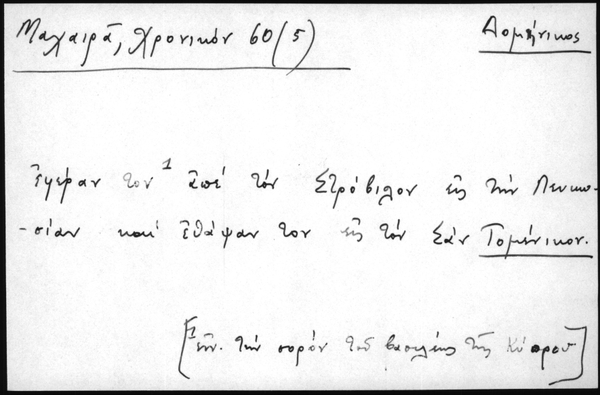 Μαχαιρᾶ, Χρονικόν 60(5)
Δομένικος
Ἐφέραν τον¹ ἀπέ τόν Στρόβιλον εἰς τήν Λευκω-
-σίαν καί ἐθάψαν τον εἰς τόν Σάν Τομένικον.
[¹ ἐνν. τήν σορόν τοῦ βασιλέως τῆς Κύπρου]